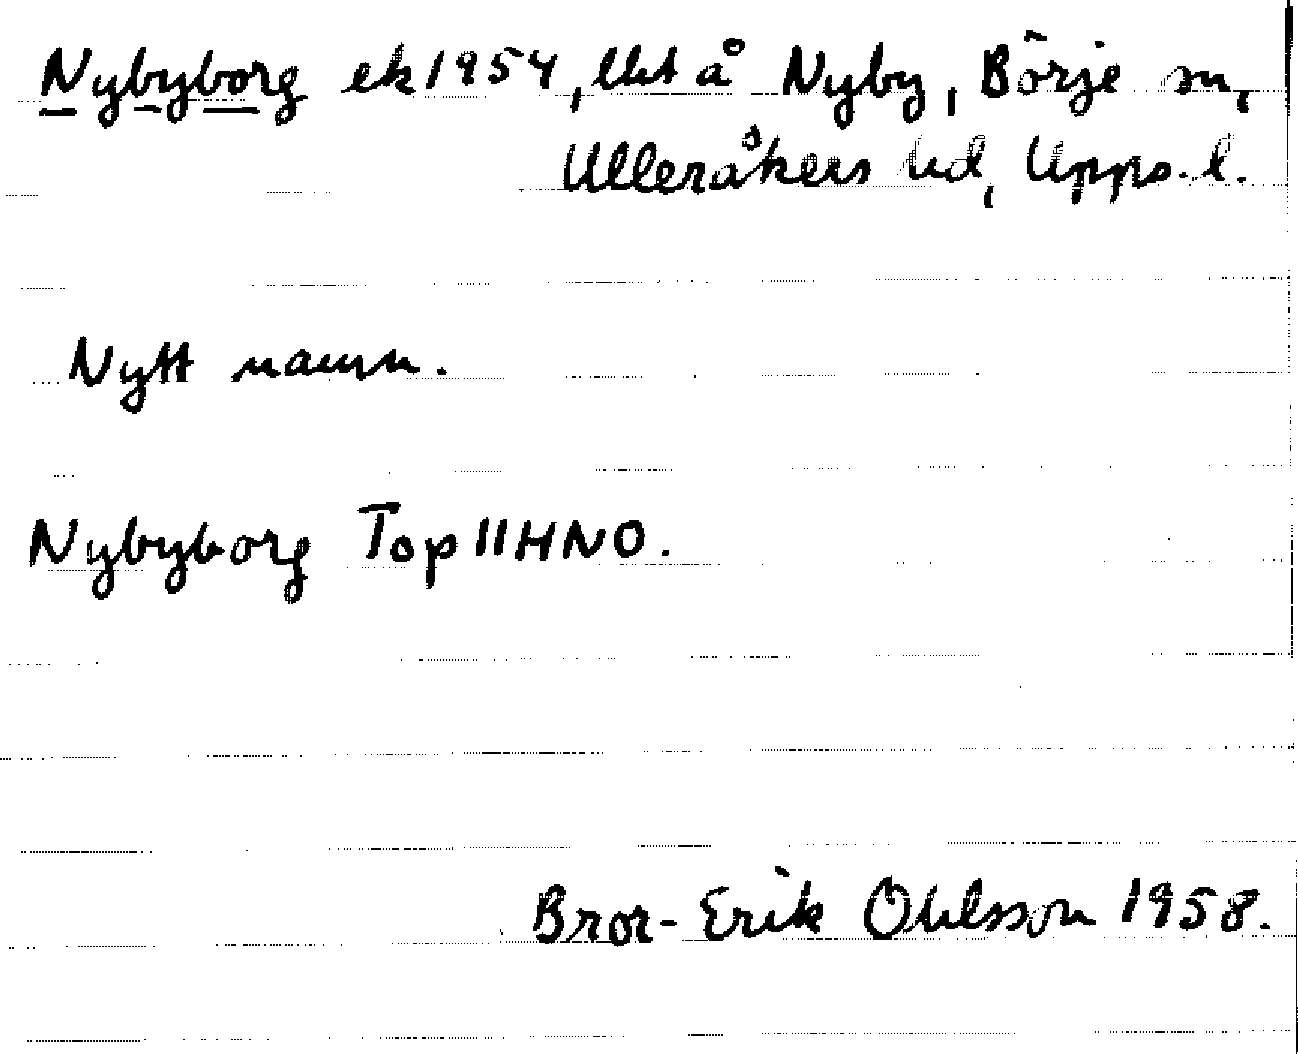 Nybyborg ek 1954, lht å Nyby, Börje sn,
Ulleråkers hd, Upps. l.
Nytt namn.
Nybyborg Top 11HNO.
Bror-Erik Ohlsson 1958.